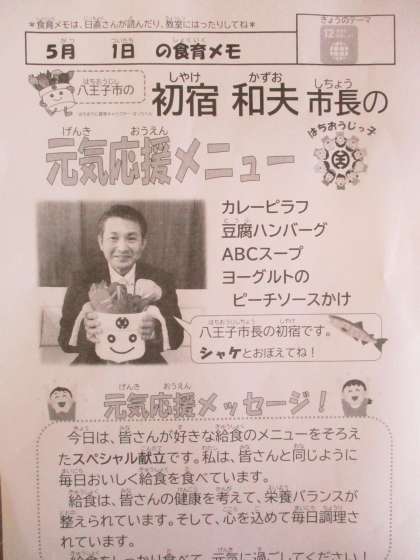 ＊食育メモは、日直さんが読んだり、教室にはったりしてね＊
きょうのテーマ
12
5月 1日 の食育メモ
八王子市の
初宿 和夫 市長の
元気応援メニュー
はちおうじっ子
カレーピラフ
豆腐ハンバーグ
ABCスープ
ヨーグルトの
ピーチソースかけ
八王子市長の初宿です。
シャケとおぼえてね！
元気応援メッセージ！
今日は、皆さんが好きな給食のメニューをそろえ
たスペシャル献立です。私は、皆さんと同じように
毎日おいしく給食を食べています。
給食は、皆さんの健康を考えて、栄養バランスが
整えられています。そして、心を込めて毎日調理さ
れています。
給食をしっかり食べて、元気に過ごしてください！